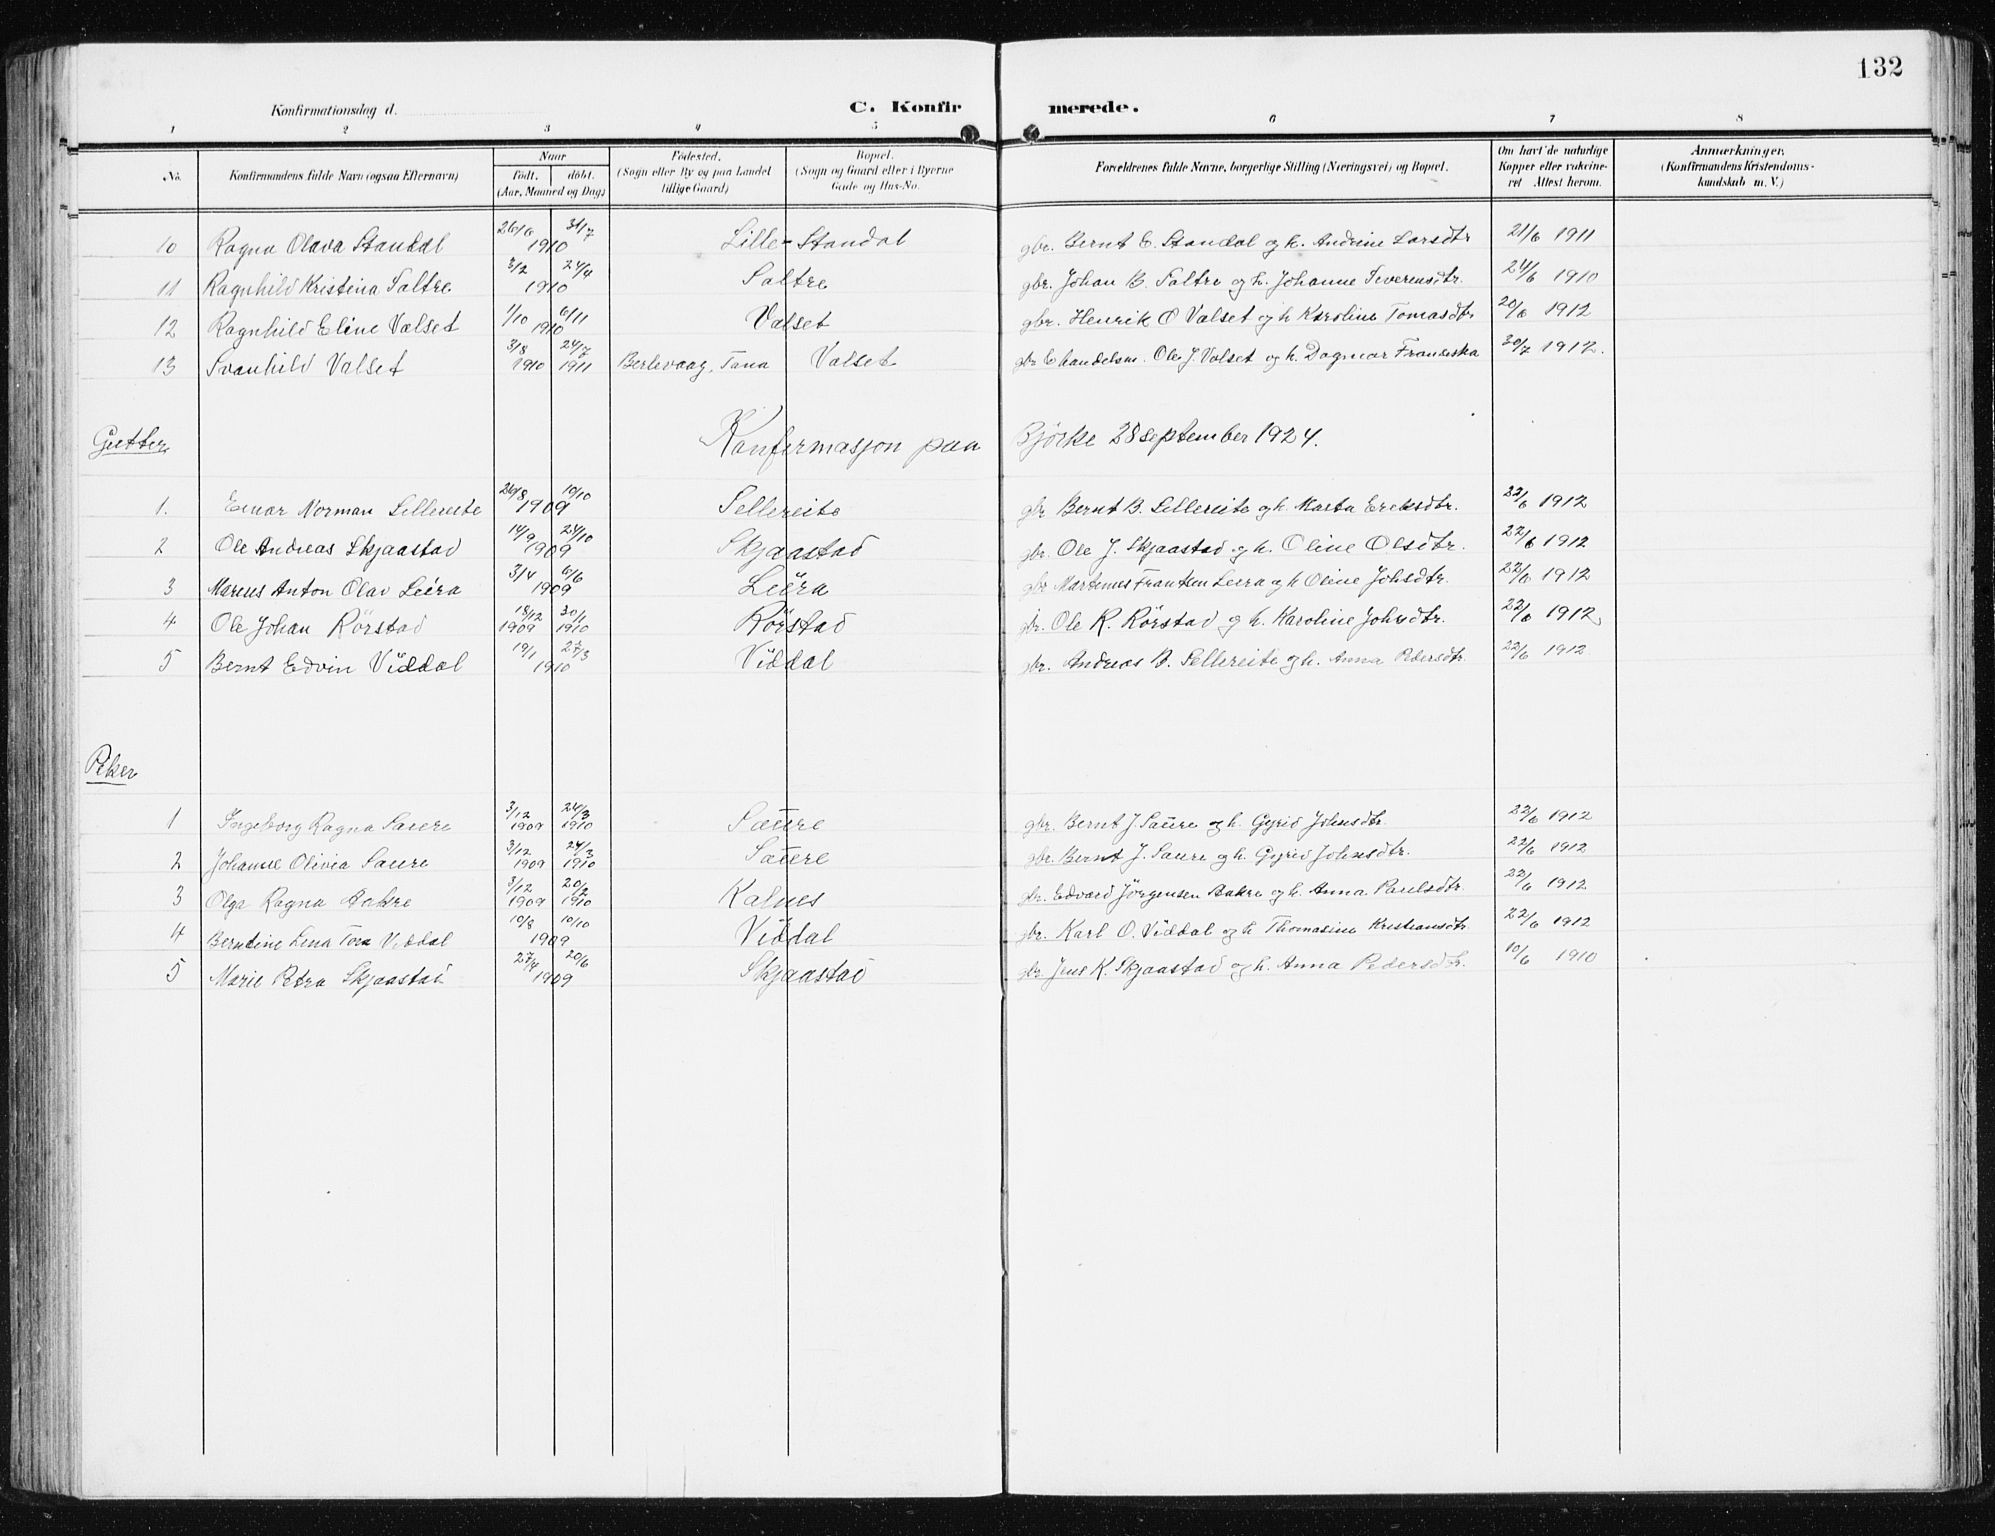 132
Konfirmationsdag d. C. Konfirmerede.
1 2 3 4 5 6 7 8
No. Konfirmandens fulde Navn (ogsaa Efternavn) Naar født. døbt. (Aar, Maaned og Dag) Fødested. (Sogn eller By og paa Landet tillige Gaard) Bopæl. (Sogn og Gaard eller i Byerne Gade og Hus-No. Forældrenes fulde Navne, borgerlige Stilling (Næringsvei) og Bopæl. Om havt de naturlige Kopper eller vakcineret Attest herom. Anmærkninger. (Konfirmandens Kristendomskundskab m. V.)
10 Ragna Olava Standal 26/6 31/7 1910 Lille-Standal gbr. Bernt E. Standal og h. Andrine Larsdtr 21/6 1911
11 Ragnhild Kristina Saltre 3/2 24/4 1910 Saltre gbr. Johan B. Saltre og h. Johanne Severensdtr. 24/6 1910
12 Ragnhild Eline Valset 1/10 6/11 1910 Valset gbr. Henrik O Valset og h Karoline Tomasdtr 20/6 1912
13 Svanhild Valset 3/8 1910 24/7 1911 Berlevaag, Tana Valset gbr & handelsm. Ole J. Valset og h. Dagmar Franciska 30/7 1912.
Gutter Konfirmasjon paa Bjørke 28 september 1924.
1. Einar Norman Sellereite 26/8 10/10 1909 Sellereite gbr Bernt B. Sellereite og h. Marta Eriksdtr. 22/6 1912
2 Ole Andreas Skjaastad 14/9 24/10 1909 Skjaastad gbr. Ole J. Skjaastad og h. Oline Olsdtr. 22/6 1912
3 Marius Anton Olav Leira 3/4 6/6 1909 Leira gbr Martinus Frantsen Leira og h Oline Johsdtr. 22/6 1912
4 Ole Johan Rörstad 18/12 1909 30/1 1910 Rörstad gbr. Ole R. Rörstad og h. Karoline Johsdtr. 22/6 1912
5 Bernt Edvin Viddal 19/1 27/3 1910 Viddal gbr. Andreas B. Sellereite og h. Anna Pedersdtr. 22/6 1912
Piker
1 Ingeborg Ragna Saure 3/12 1909 24/3 1910 Saure gbr. Bernt J. Saure og h. Gyrid Johnsdtr. 22/6 1912
2 Johanne Olivia Saure 3/12 1909 24/3 1910 Saure gbr. Bernt J. Saure og h. Gyrid Johnsdtr. 22/6 1912
3 Olga Ragna Aakre 3/12 1909 20/2 1910 Kalnes gbr. Edvard Jörgensen Aakre og h. Anna Paulsdtr. 22/6 1912
4 Berntine Lena Tora Viddal 10/8 10/10 1909 Viddal gbr. Karl O. Viddal og h Thomasine Kristiansdtr. 22/6 1912
5 Marie Petra Skjaastad 27/4 20/6 1909 Skjaastad gbr Jens K. Skjaastad og h. Anna Pedersdtr. 10/6 1910